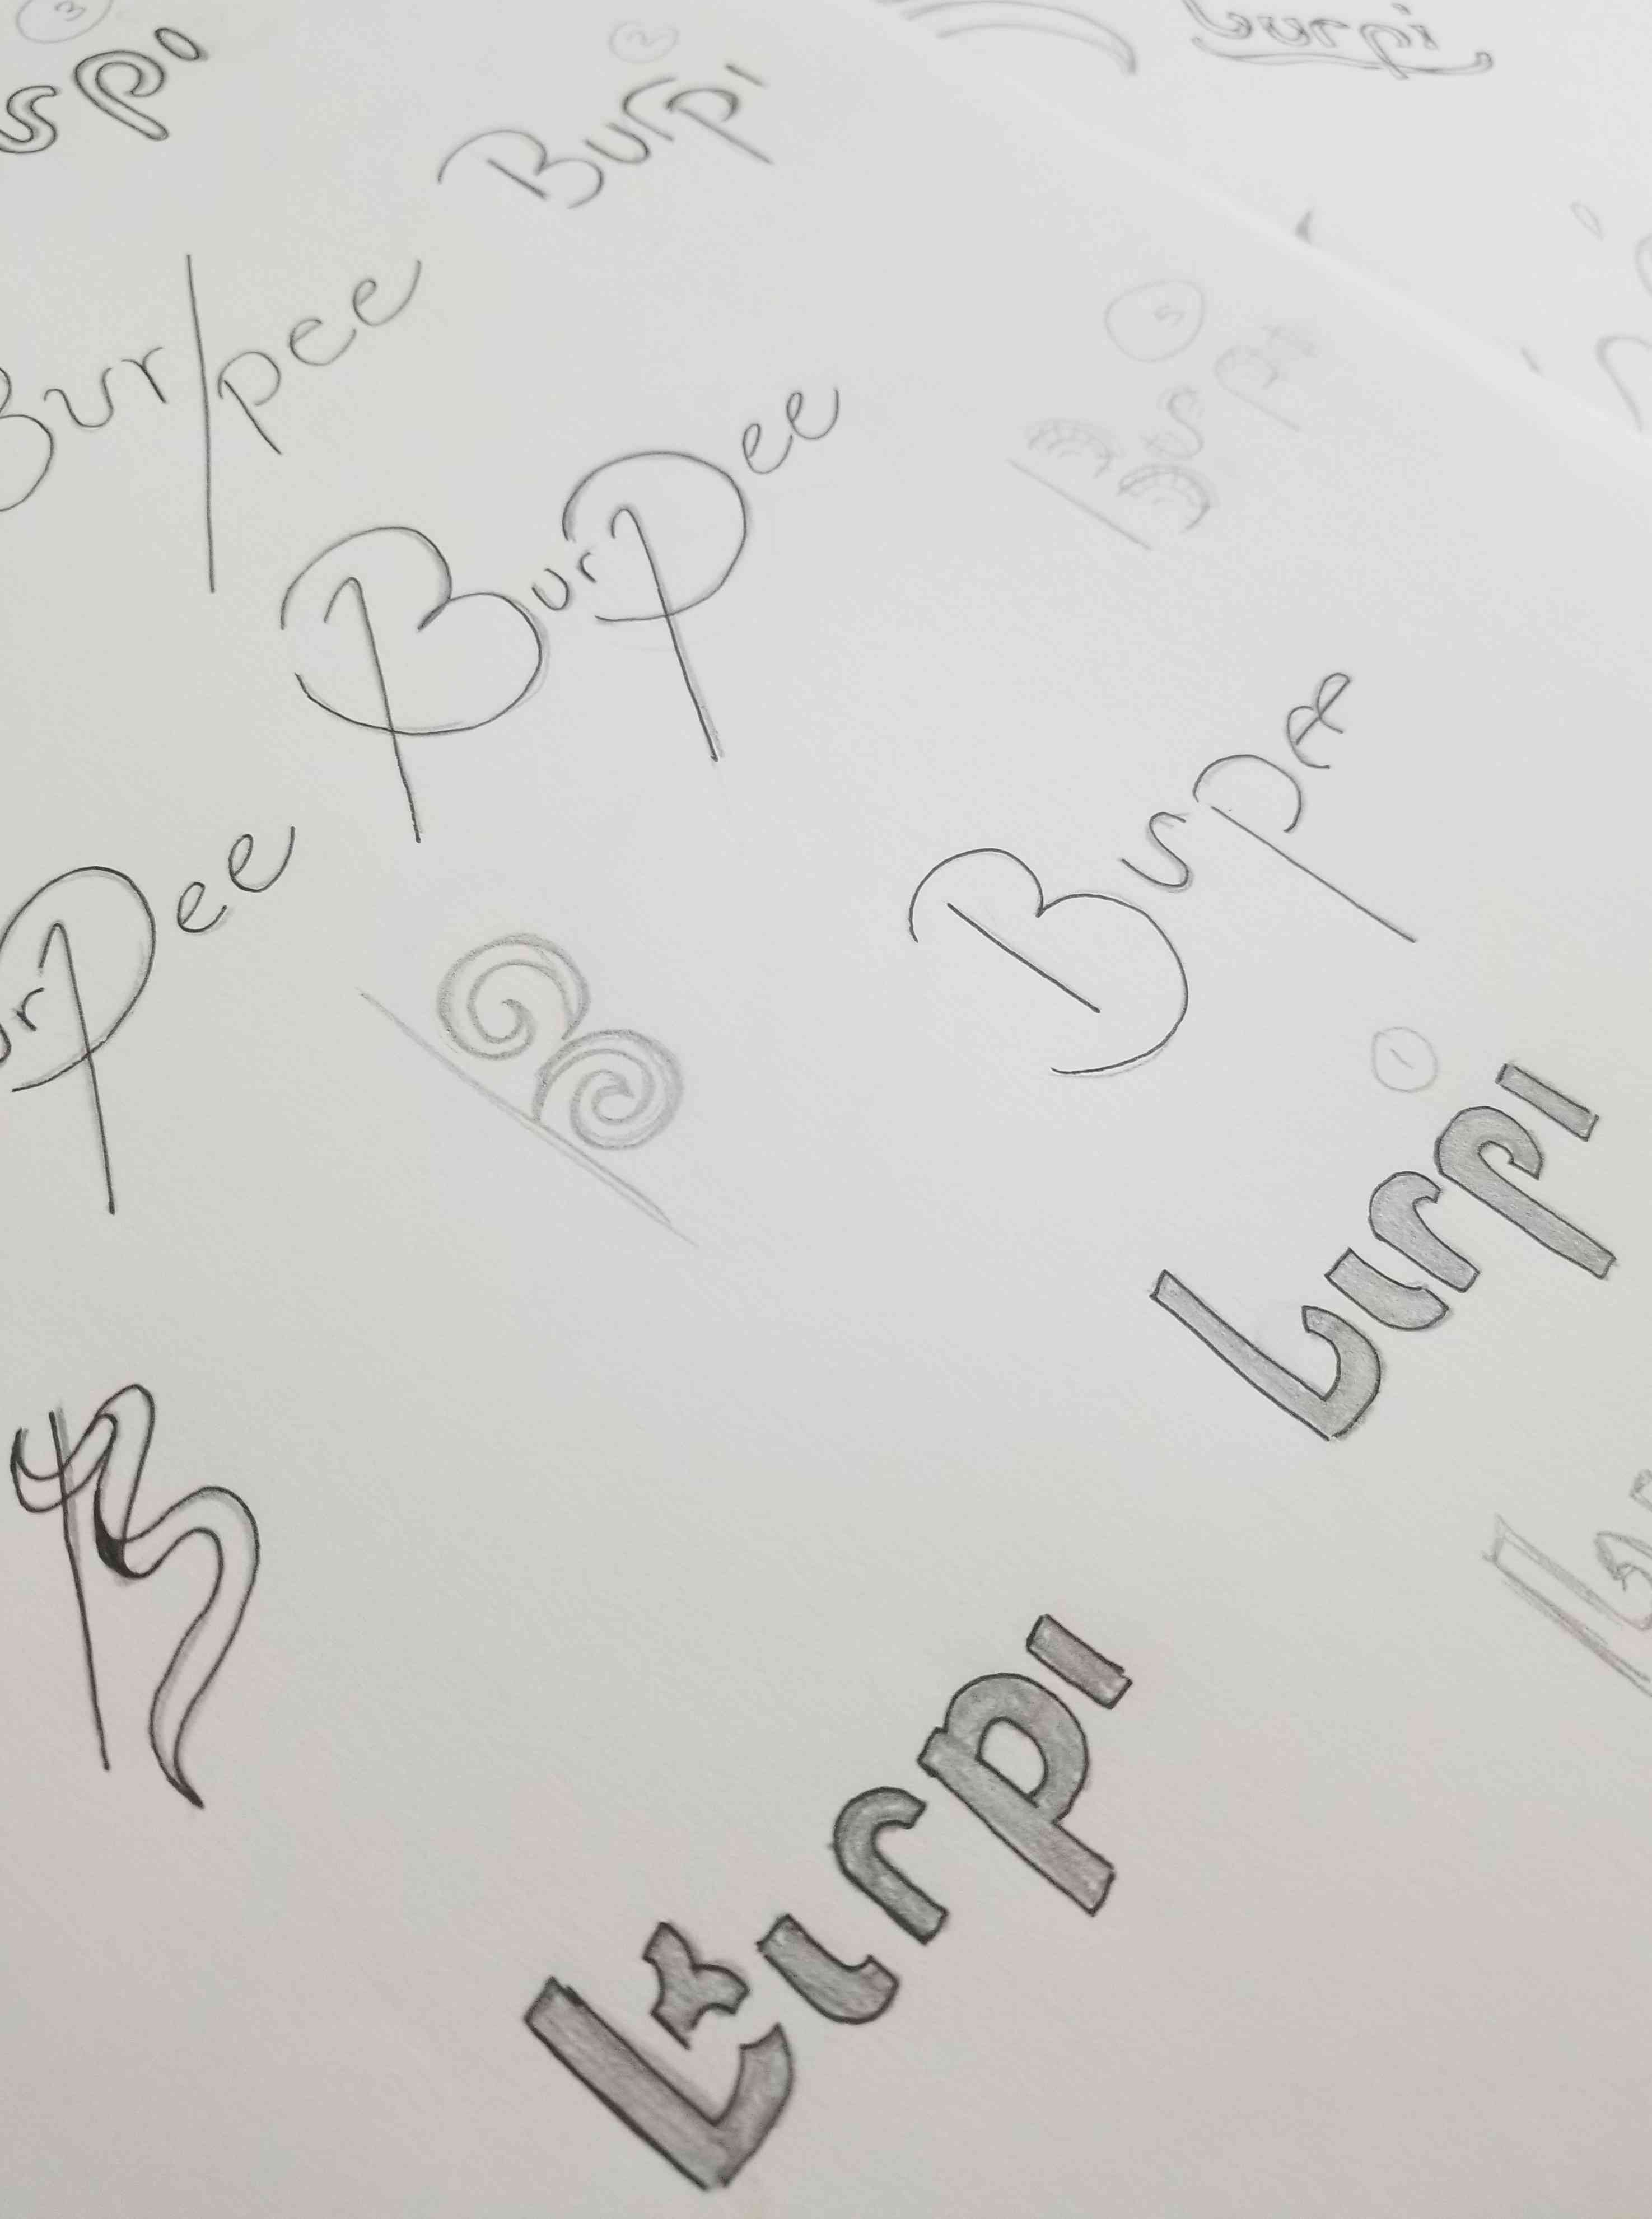 3
spi
2
Burpi
burpi
Bur/pee
5
BurPee
Bspi
rPee
B
Bspee
1
burpi
B
burpi